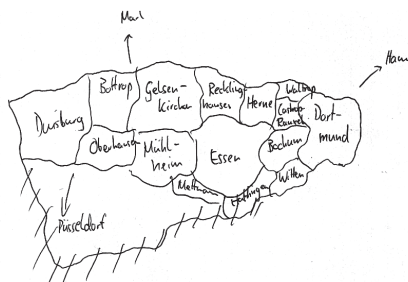 Marl
Ham
Bottrop
Gelsen-
Kirchen
Reckling
hausen
Herne
Waltrop
Castrop
Rauxel
Dort-
mund
Duisburg
Oberhausen
Mühl-
heim
Essen
Bochum
Witten
Mettmann
Hattingen
Düsseldorf